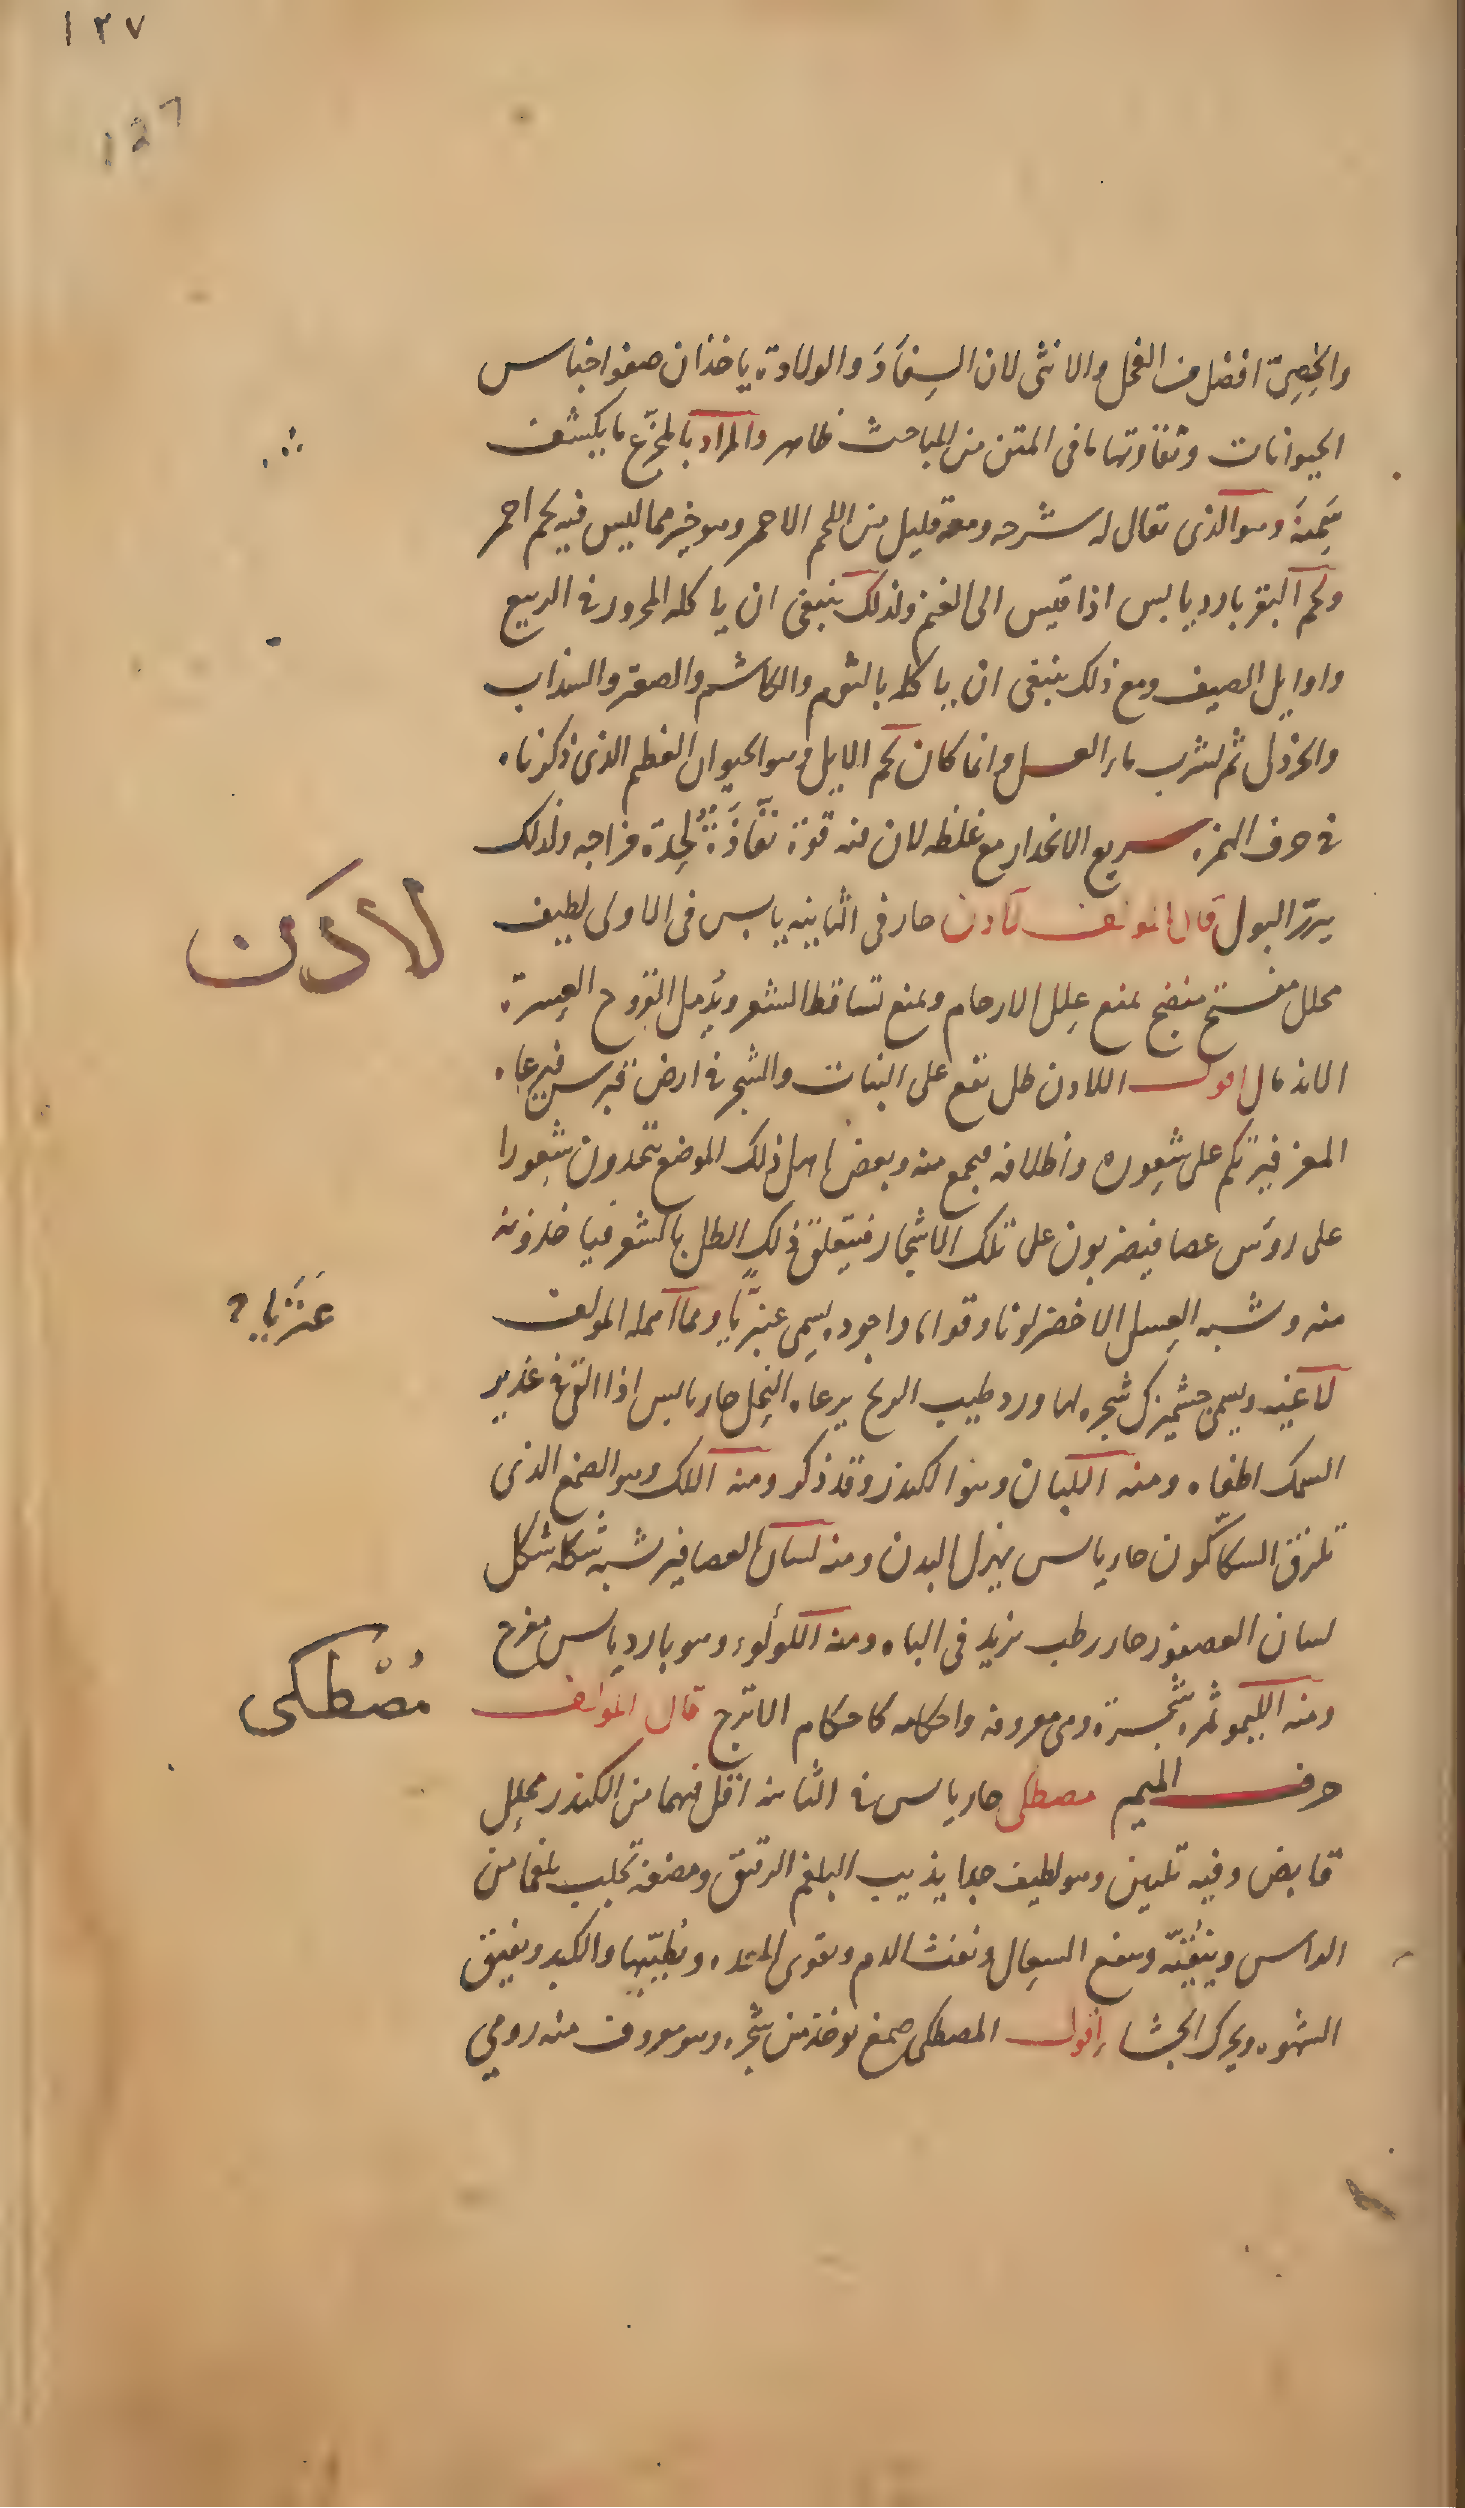 ١٢٧
127
والخصيّ افضل من الفحل والانثى لان السِفَادَ والولادة ياخذان صفوا جناس
الحيوانات وتفاوتها ما فى المتن من المباحث ظاهر والمراد بالمجزّع ما يكشف
سَمِنَه وهو الذى يقال له شرحه ومعه قليل من اللحم الاحمر وهو خير مما ليس فيه لحم احمر
ولحم البقر بارد يابس اذا قيس الى الغنم ولذلك ينبغى ان ياكله المحرور فى الربيع
واوايل الصيف ومع ذلك ينبغى ان ياكله بالثوم والكاشم والصعتر والسذاب
والخردل ثم يشرب ماء العسل وانما كان لحم الايل وهو الحيوان العظيم الذى ذكرناه
فى حرف الهمزه سريع الانحدار مع غلظه لان فيه قوّة نفّاذَةٌ لحِدّة مزاجه ولذلك
يدرّ البول قال المؤلف لادن حار فى الثانيه يابس فى الاولى لطيف
لادَن
محلل مفتح منضج يمنع عِلل الارحام ويمنع تساقط الشعر ويُدمل القروح العِسرة
الاندمال اقول اللادن طل يقع على النبات والشجر فى ارض قبرس فيرعاه
المعز فيرتكم على شعوره واظلافه فيجمع منه وبعض اهل ذلك الموضع يتخذون شعورا
على روس عصا فيضربون على تلك الاشجار فيتعلق ذلك الطل بالشعر فياخذونه
منه وشبه العسل الاخضر لونا وقواما واجوده يسمى عنبريًّا ومما اهمله المولف
عنبريا ؟
لاعيه ويسمى جشميزك شجره لها ورد طيب الريح يرعاه النحل حار يابس اذا القى فى غدير
السمك اطفاه ومنه اللبان وهو الكندر وقد ذكر ومنه اللك وهو الصمغ الذى
تلزق السكاكون حار يابس يهزل البدن ومنه لسان العصافير شبه شكله شكل
لسان العصفور حار رطب يزيد فى الباه ومنه اللؤلوء وهو بارد يابس مفرح
ومنه الليمو ثمرة شجرة وهى معروفه واحكامه كاحكام الاترج قال المؤلف
مُصْطكى
حرف الميم مصطكى حار يابس فى الثانيه اقل فيهما من الكندر محلل
قابض وفيه تليين وهو لطيف جدا يذيب البلغم الرقيق ومضغه تجلب بلغما من
الراس وينقّيه وينفع السعال ونفث الدم ويقوى المعده ويُطيّبها والكبد ويفتق
الشهوه ويحرك الجشاء اقول المصطكى صمغ يوخذ من شجره وهو معروف منه رومي